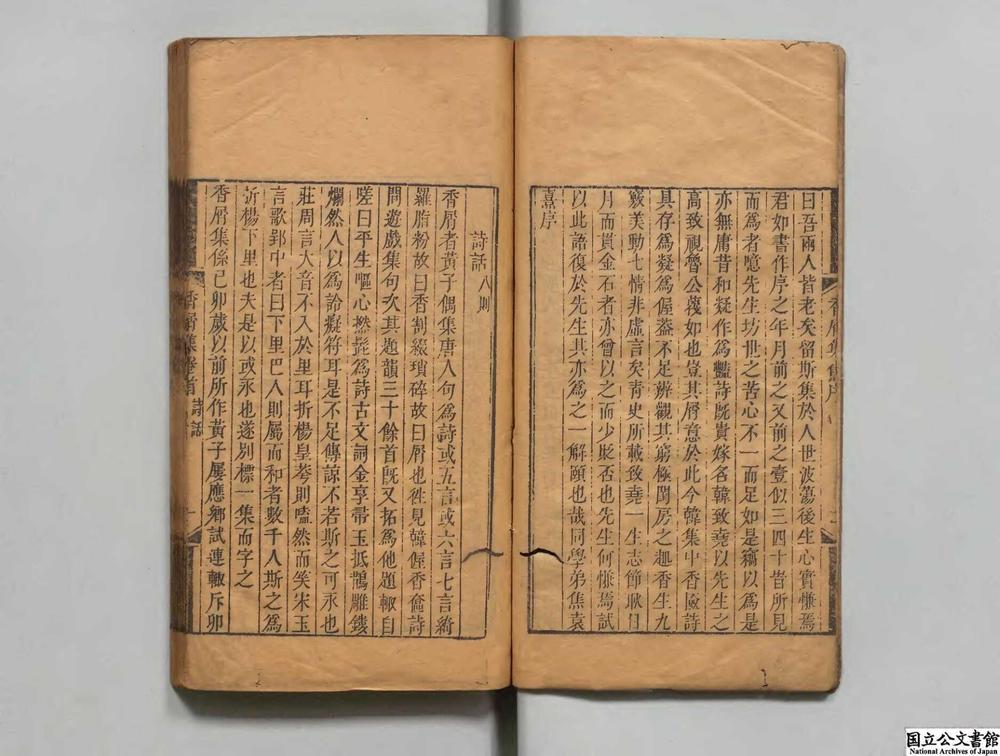 曰吾兩人皆老矣留斯集於人世波蕩後生心實慊焉
君如書作序之年月前之又前之壹似三四十昔所見
而爲者噫先生坊世之苦心不一而足如是竊以爲是
亦無庸昔和凝作爲豔詩旣貴嫁名韓致堯以先生之
高致視魯公蔑如也豈其屑意於此今韓集中香匳詩
具存爲凝爲偓葢不足辨觀其窮極閨房之
竅美動七情非虛言矣靑史所載致堯一生志節耿日
月而貫金石者亦曾以之而少貶否也先生何慊焉試
以此諦復於先生其亦爲之一解頤也哉同學弟焦袁
熹序
香屑集
詩話 八則
香屑者黃子偶集唐人句爲詩或五言或六言七言綺
羅脂粉故曰香割綴瑣碎故曰屑也徃見韓偓香奩詩
間遊戲集句次其題韻三十餘首旣又拓爲他題輙自
嗟曰平生嘔心撚髭爲詩古文詞金享帚玉抵鵲雕鏤
爛然人以爲詅癡符耳是不足傳諒不若斯之可永也
莊周言大音不入於里耳折楊皇考則嗑然而笑宋玉
言歌郢中者曰下里巴人則屬而和者數千人斯之爲
折楊下里也夫是以或永也遂別標一集而字之
香屑集係己卯歲以前所作黃子屢應鄉試連輙斥卯
香屑集卷首 詩話 一
国立公文書館
National Archives of Japan